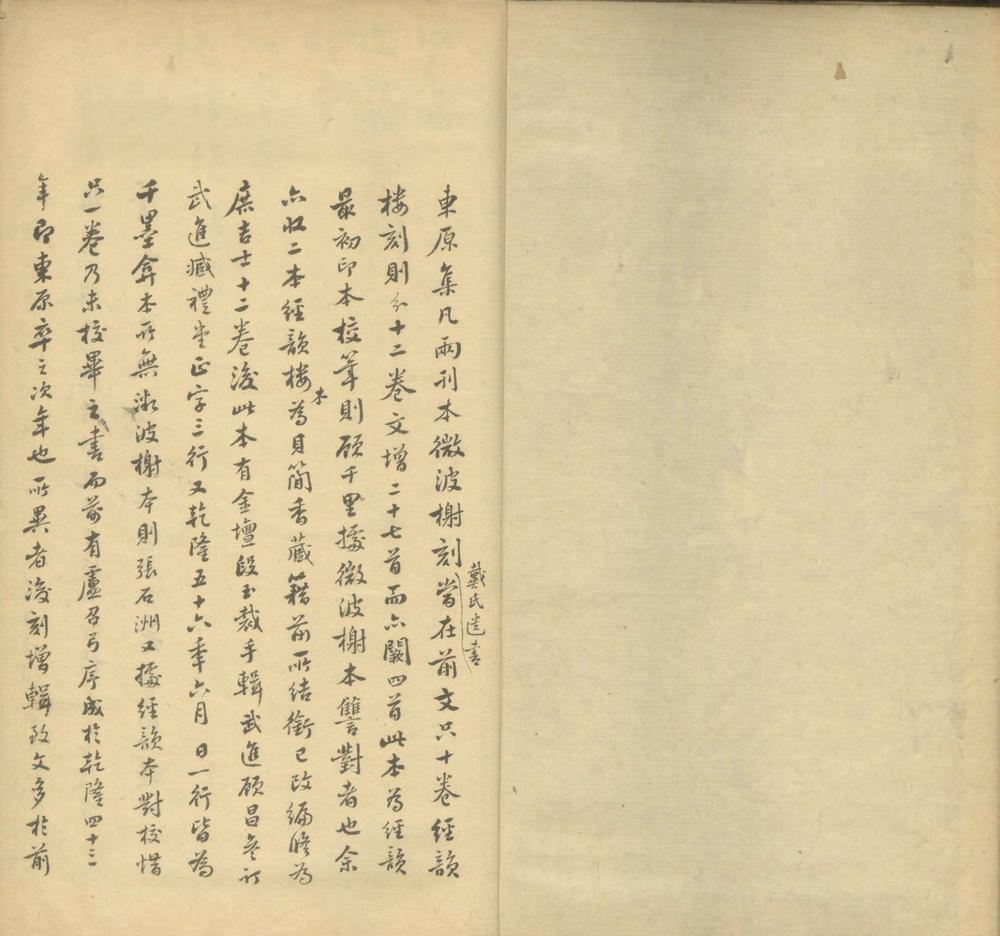 東原集凡兩刊本微波榭刻戴氏遺書當在前文只十卷經韻
樓刻則分十二卷文增二十七首而亦闕四首此本為經韻
最初印本校筆則顧千里據微波榭本讐對者也余
亦收二本經韻樓本為貝簡香藏籍前所結銜已改編修為
庶吉士十二卷後此本有金壇段玉裁手輯武進顧昌參訂
武進臧禮堂正字三行又乾隆五十六年六月日一行皆為
千墨弇本所無微波榭本則張石洲又據經韻本對校惜
只一卷乃未校畢之書而前有盧召弓序成於乾隆四十三
年即東原卒之次年也所異者後刻增輯致文多於前